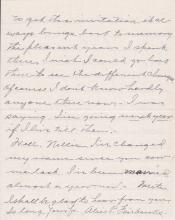 to get the invitation it al
ways brings back to memory
the pleasant years I spent
there. I wish I could go back
there to see the different changes
Of course I don't know hardly
anyone there now. I was
saying I'm going next year
if I live till then.
Well, Nellie I've changed
my name since you saw
me last. I've been married
almost a year now. Write
I shall be glad to hear from you
So long, your